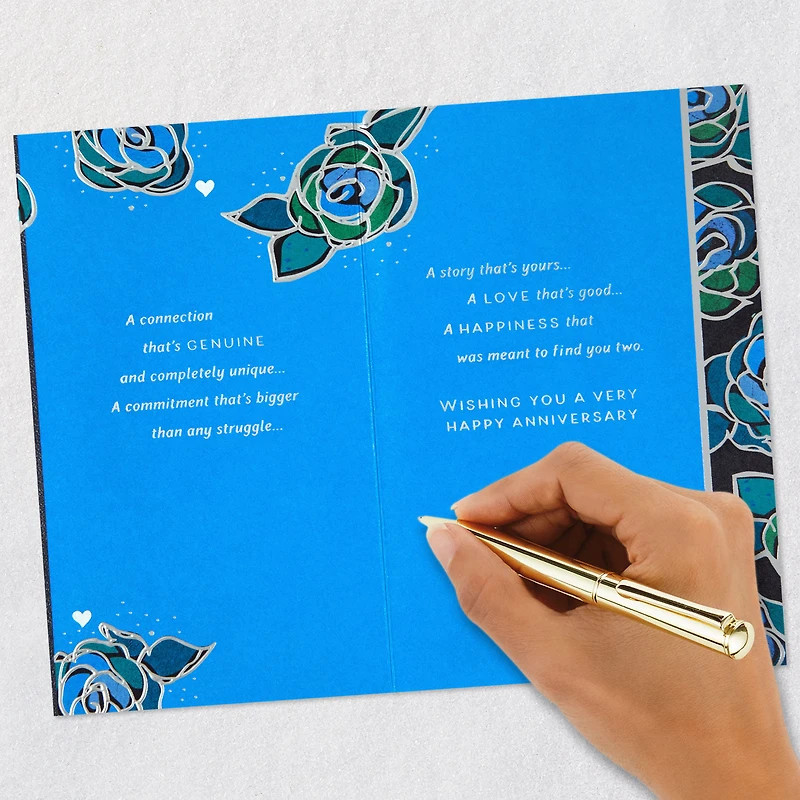 A connection
that's GENUINE
and completely unique...
A commitment that's bigger
than any struggle...
A story that's yours...
A LOVE that's good...
A HAPPINESS that
was meant to find you two.
WISHING YOU A VERY
HAPPY ANNIVERSARY